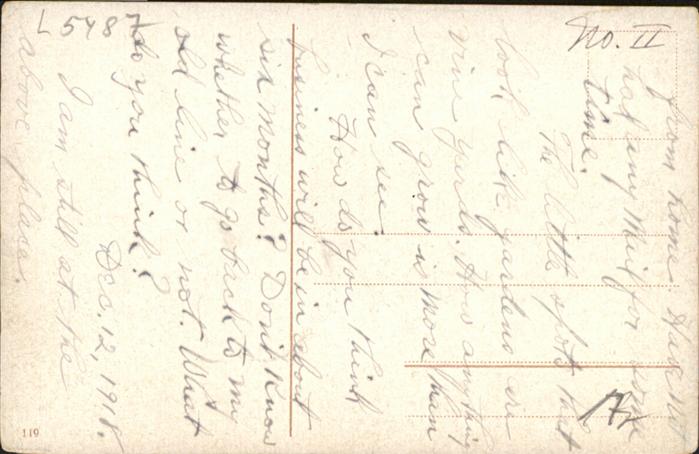 No. II
from home. Have not
had any mail for some
time.
The little spots that
look like gardens are
vine yards. How anything
can grow is more than
I can see.
How do you think
business will be in about
six months? Don't know
whether to go back to my
old line or not. What
do you think?
Dec. 12, 1918.
I am still at the
above place.
L5487
119